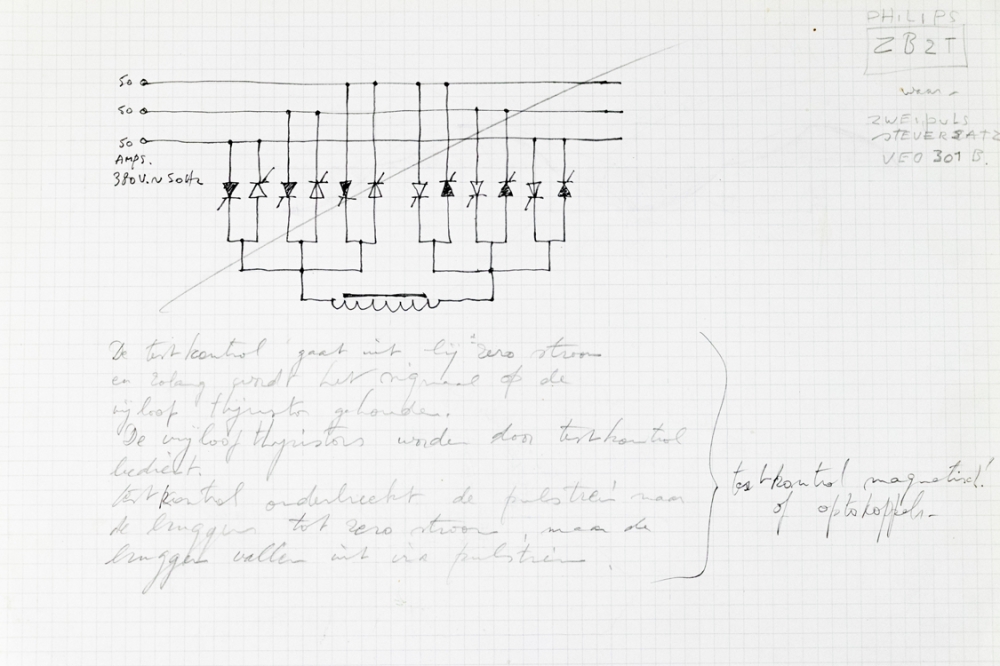 PHILIPS
ZB2T
ZWEIPULS
STEUERSATZ
VEO 301 B.
50
50
50
AMPS.
380V.~50Hz
De testkontrol gaat uit bij zero stroom
en zolang wordt het signaal op de
vrijloop thyristor gehouden.
De vrijloop thyristors worden door testkontrol
bedient.
testkontrol onderbreekt de pulstrein naar
de bruggen tot zero stroom, maar de
bruggen vallen uit via pulstrein.
testkontrol magnetisch!
of optokoppels